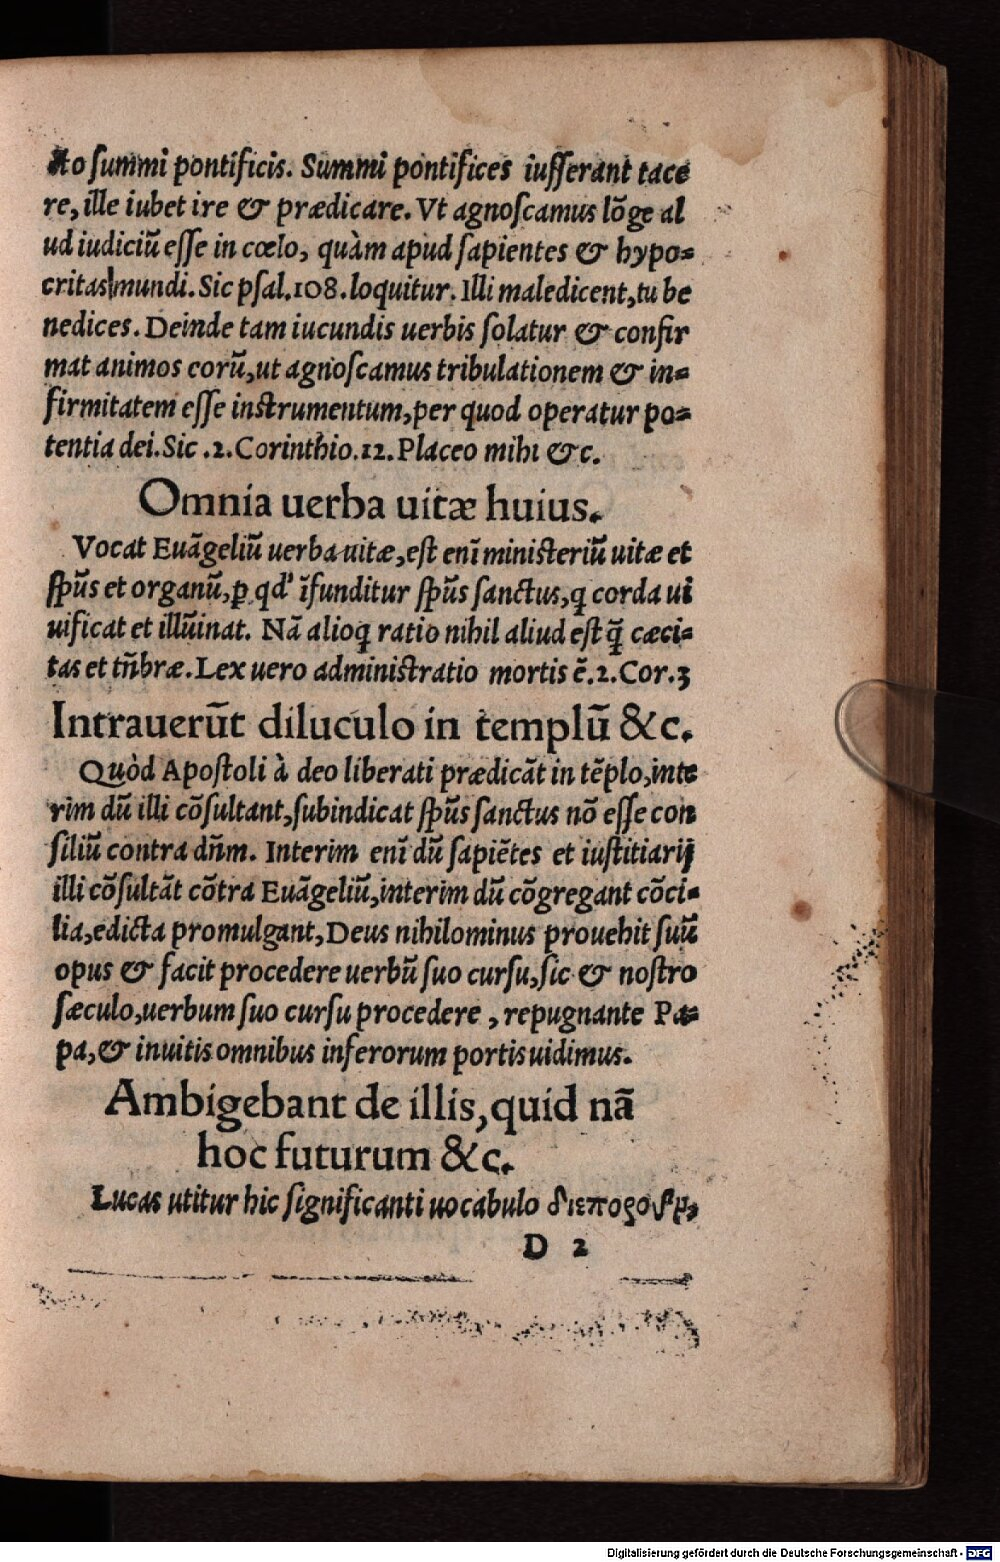 to summi pontificis. Summi pontifices iusserant tace
re, ille iubet ire & prædicare. Vt agnoscamus lõge al
ud iudiciũ esse in cœlo, quàm apud sapientes & hypo=
critas mundi. Sic psal.108.loquitur. Illi maledicent,tu be
nedices. Deinde tam iucundis uerbis solatur & confir
mat animos eorũ,ut agnoscamus tribulationem & in=
firmitatem esse instrumentum,per quod operatur po=
tentia dei.Sic .2.Corinthio.12.Placeo mihi &c.
Omnia uerba uitæ huius.
Vocat Euãgeliũ uerba uitæ,est enĩ ministeriũ uitæ et
sp̃us et organũ,ꝑ qd' ĩfunditur sp̃us sanctus,q̃ corda ui
uificat et illũinat. Nã alioq̃ ratio nihil aliud est q̃̃ cæci=
tas et tñbræ.Lex uero administratio mortis ẽ.2.Cor.3
Intrauerũt diluculo in templũ &c.
Quòd Apostoli à deo liberati prædicãt in tẽplo,inte
rim dũ illi cõsultant,subindicat sp̃us sanctus nõ esse con
siliũ contra dñm. Interim enĩ dũ sapiẽtes et iustitiarij
illi cõsultãt cõtra Euãgeliũ,interim dũ cõgregant cõci=
lia,edicta promulgant,Deus nihilominus prouehit suũ
opus & facit procedere uerbũ suo cursu,sic & nostro
sæculo,uerbum suo cursu procedere , repugnante Pa=
pa,& inuitis omnibus inferorum portis uidimus.
Ambigebant de illis,quid nã
hoc futurum &c.
Lucas utitur hic significanti uocabulo
D 2
Digitalisierung gefördert durch die Deutsche Forschungsgemeinschaft - DFG